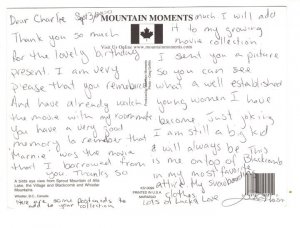 Dear Charlie Sept 3/2000
MOUNTAIN MOMENTS
Visit Us Online www.mountainmoments.com
Thank you so much
for the lovely birthday
present. I am very
please that you remembered
And have already watch
the movie with my roommate
you have a very good
memory to remember that
Marnie was the movie
that I borrowed from
you. Thanks so
much I will add
it to my growing
movie collection
I sent you a picture
so you can see
what a well established
young women I have
become. Just joking
I am still a big kid
& will always be. This
is me on top of Blackcomb
in my most favorite
attire My snowboard
clothes
Lots of Lucks Love
A birds eye view from Sproat Mountain of Alta
Lake, the Village and Blackcomb and Whistler
Mountains.
Whistler, B.C., Canada
Here are some postcards to
add to your collection.
PRINTED IN U.S.A.